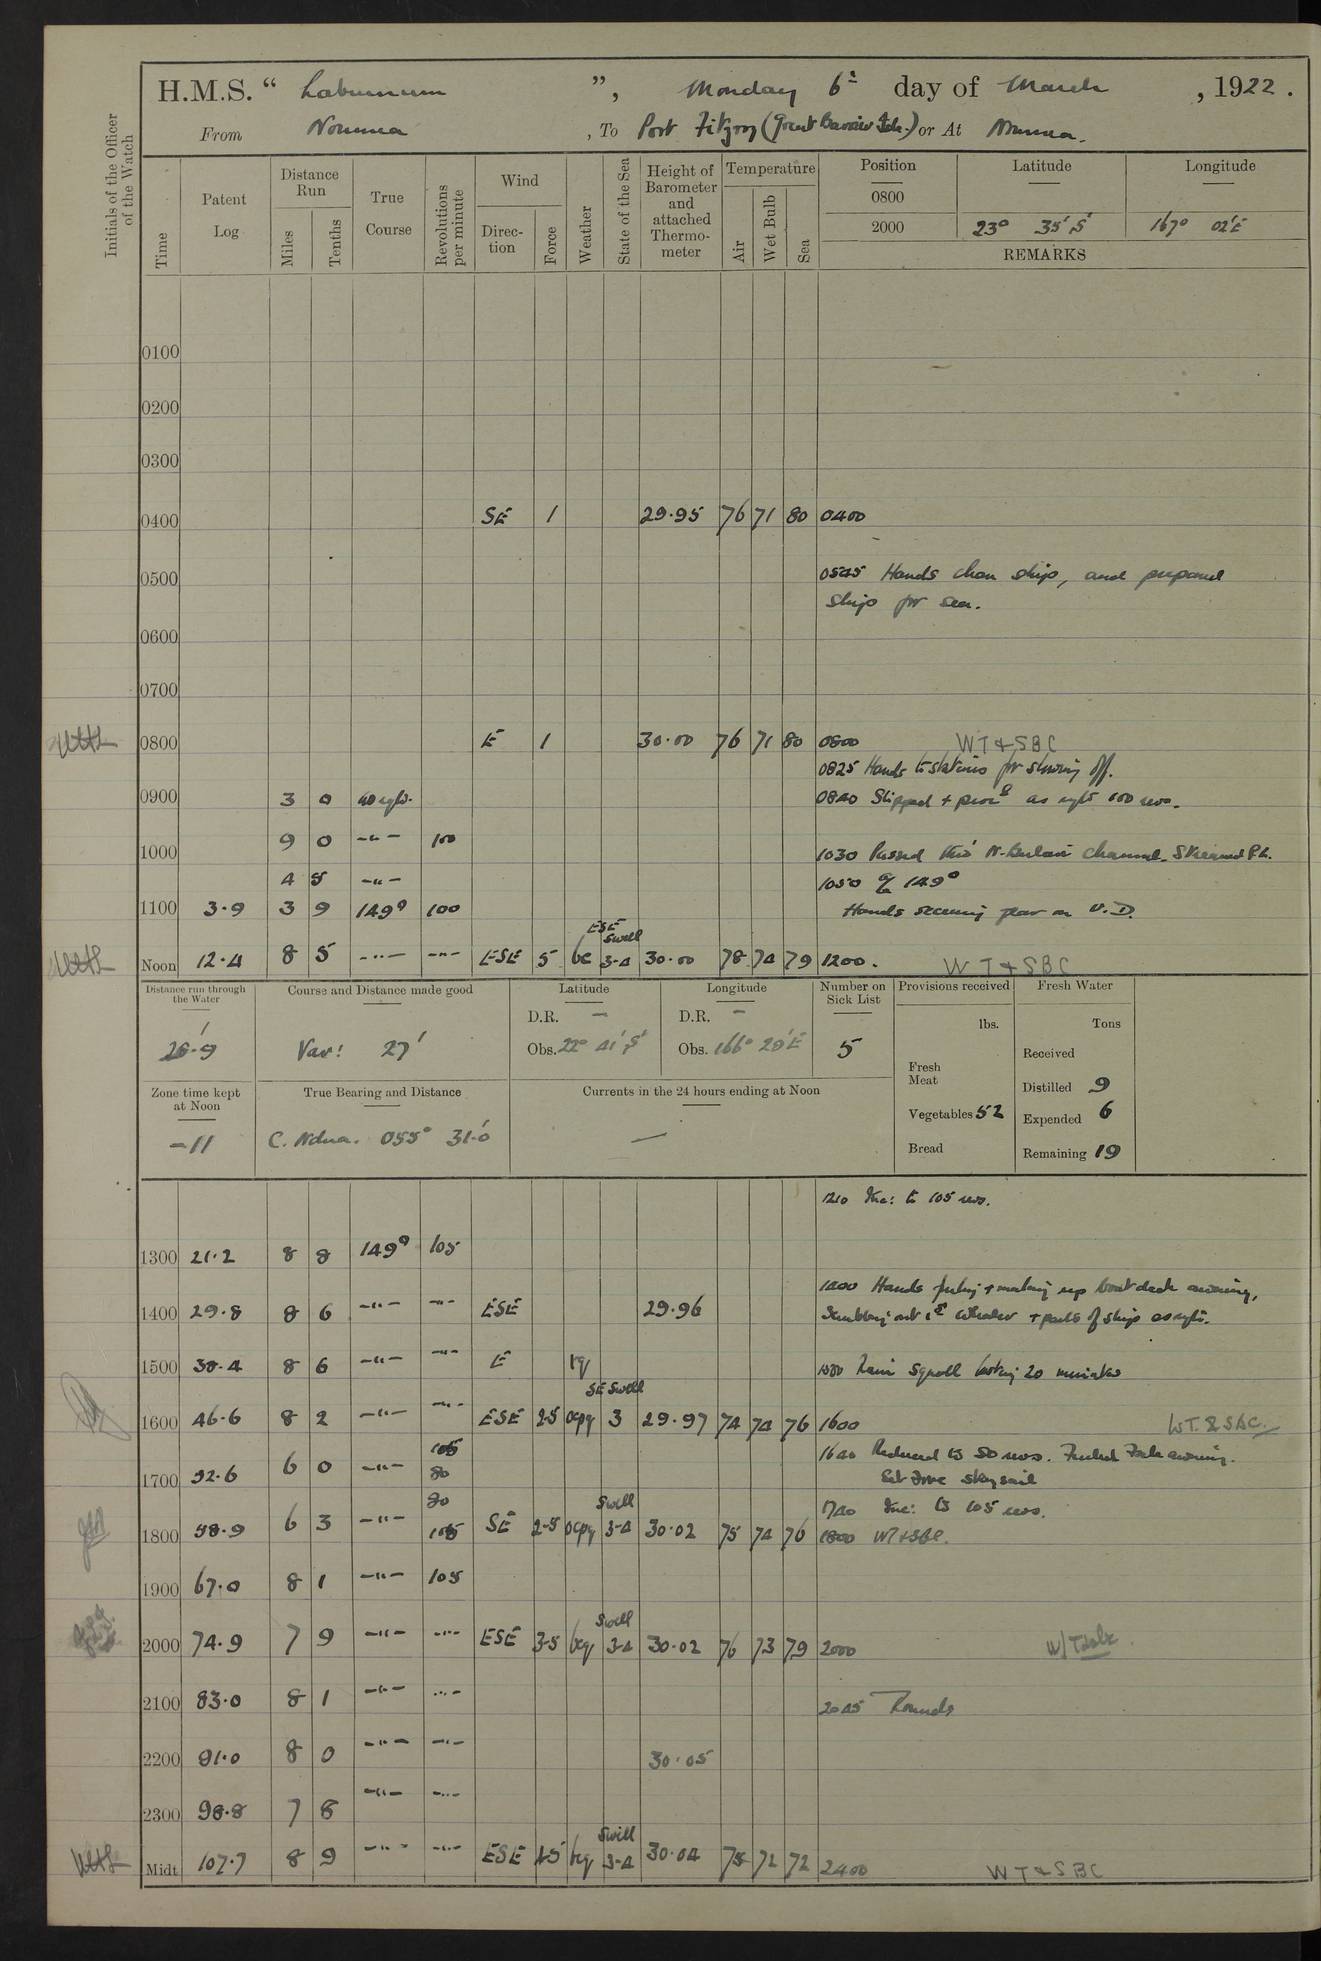 H.M.S. “ Laburnum ”, Monday 6th day of March , 1922 .
From Noumea , To Port Fitzroy (Great Barrier Isle.) or At Noumea.
Initials of the Officer of the Watch
Time
Patent Log
Distance Run
Miles
Tenths
True Course
Revolutions per minute
Wind
Direction
Force
Weather
State of the Sea
Height of Barometer and attached Thermometer
Temperature
Air
Wet Bulb
Sea
Position Latitude Longitude
0800
2000 23° 35' S 167° 02' E
REMARKS
0100
0200
0300
0400 SE 1 29.95 76 71 80 0400
0500 0545 Hands clean ship, and prepared
ship for sea.
0600
0700
0800 E 1 30.00 76 71 80 0800 WT & SBC
0825 Hands to stations for shoving off.
0900 3 0 as reqte. 0840 Slipped + proc'd as reqte 100 revs.
9 0 –"– 100
1000 1030 Passed thro' N. Bulari channel. Streamed P.L.
4 5 –"– 1050 a/c 149°
1100 3.9 3 9 149° 100 Hands securing gear on U.D.
ESE Swell
Noon 12.4 8 5 –"– –"– ESE 5 bc 3-4 30.00 78 74 79 1200. WT & SBC
Distance run through the Water
Course and Distance made good
Latitude
Longitude
Number on Sick List
Provisions received
Fresh Water
lbs.
Tons
D.R. –
D.R. –
Var: 27'
Obs. 22° 41' S
Obs. 166° 29' E
5
Received
Fresh Meat
Distilled 9
Zone time kept at Noon
True Bearing and Distance
Currents in the 24 hours ending at Noon
Vegetables 52
Expended 6
–11
C. Ndua. 055° 31.0'
—
Bread
Remaining 19
1210 Inc: to 105 revs.
1300 21.2 8 8 149° 105
1400 Hands furling + making up boat deck awning,
1400 29.8 8 6 –"– –"– ESE 29.96 Scrubbing out 1st Whaler + parts of ship as reqte.
1500 38.4 8 6 –"– –"– E rq 1500 Rain Squall lasting 20 minutes
SE Swell
1600 46.6 8 2 –"– –"– ESE 2-5 ocpq 3 29.97 74 74 76 1600 WT. & SBC.
105 1640 Reduced to 80 revs. Furled Fxle awning.
1700 52.6 6 0 –"– 80 Set Fore staysail
80 Swell 1740 Inc: to 105 revs.
1800 58.9 6 3 –"– 105 SE 2-5 ocpq 3-4 30.02 75 74 76 1800 WT & SBC.
1900 67.0 8 1 –"– 105
Swell
2000 74.9 7 9 –"– –"– ESE 3-5 bcq 3-4 30.02 76 73 79 2000
2100 83.0 8 1 –"– –"– 2045 Rounds
2200 91.0 8 0 –"– –"– 30.05
2300 98.8 7 8 –"– –"–
Swell
Midt 107.7 8 9 –"– –"– ESE 4-5 bcq 3-4 30.04 75 72 72 2400 WT & SBC